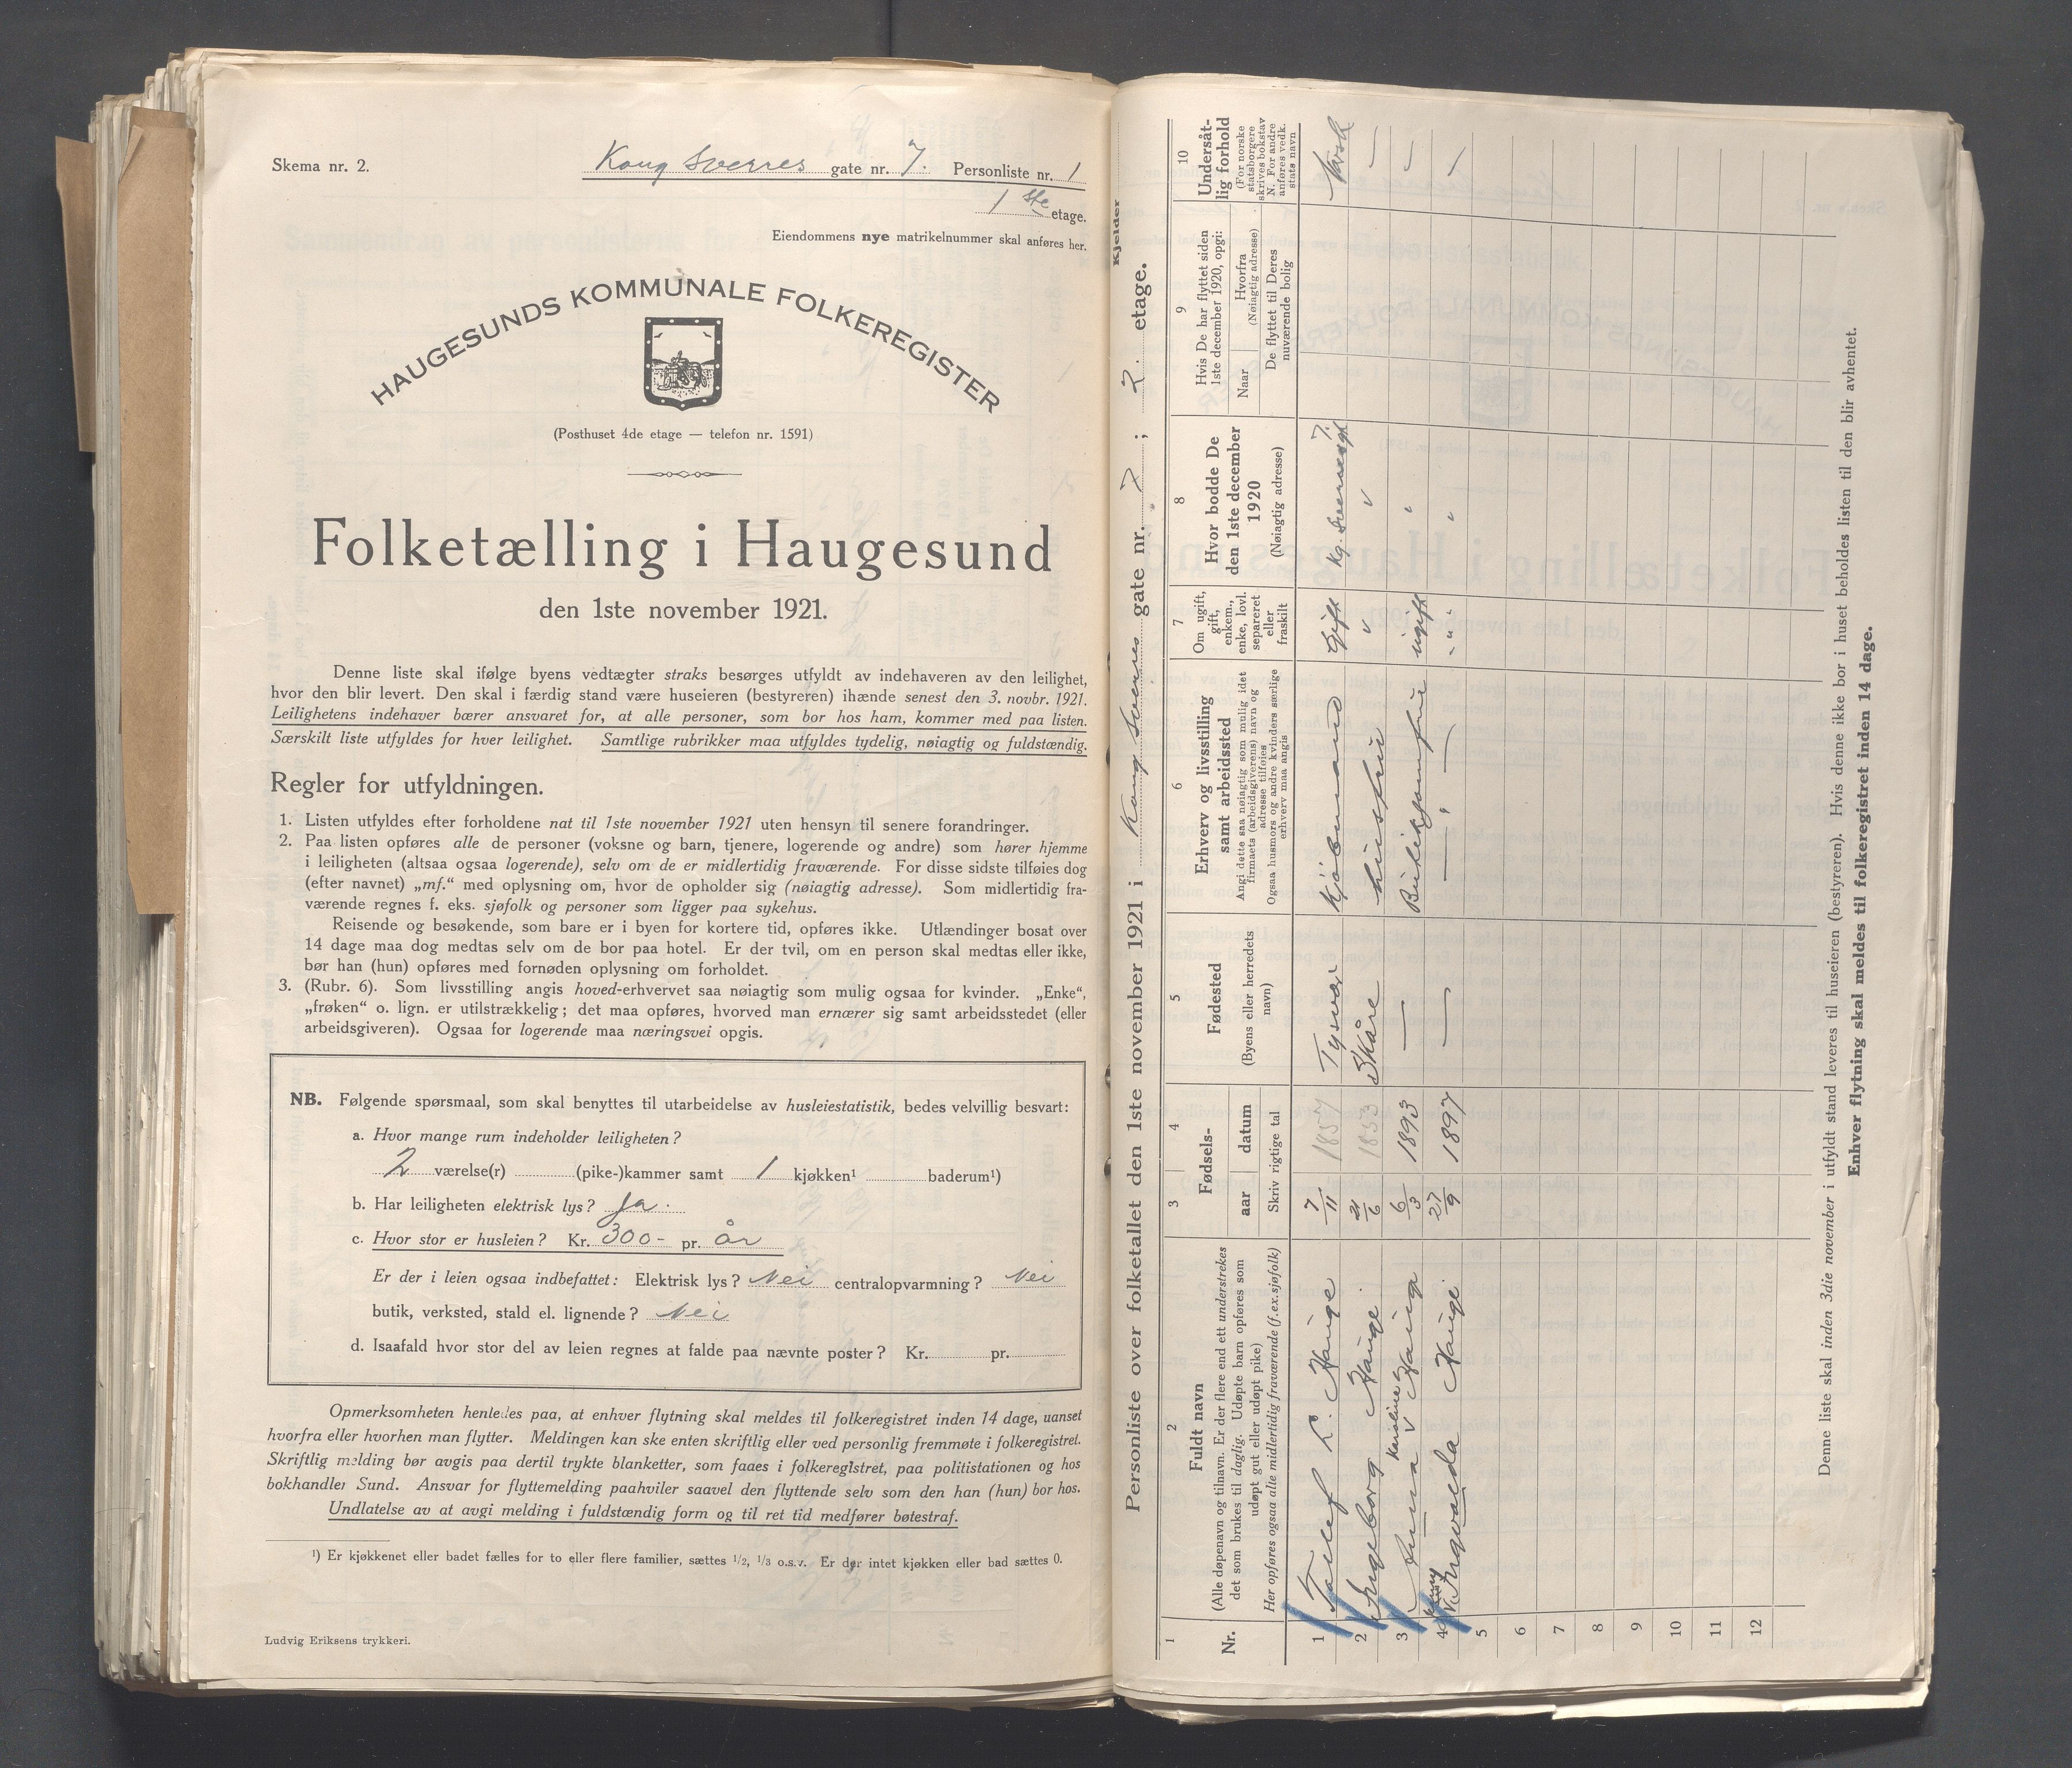 Skema nr. 2.
Kong Sverres gate nr. 7. Personliste nr. 1
1 ste etage.
Eiendommens nye matrikelnummer skal anføres her.
HAUGESUNDS KOMMUNALE FOLKEREGISTER
(Posthuset 4de etage — telefon nr. 1591)
Folketælling i Haugesund
den 1ste november 1921.
Denne liste skal ifølge byens vedtægter straks besørges utfyldt av indehaveren av den leilighet,
hvor den blir levert. Den skal i færdig stand være huseieren (bestyreren) ihænde senest den 3. novbr. 1921.
Leilighetens indehaver bærer ansvaret for, at alle personer, som bor hos ham, kommer med paa listen.
Særskilt liste utfyldes for hver leilighet. Samtlige rubrikker maa utfyldes tydelig, nøiagtig og fuldstændig.
Regler for utfyldningen.
1. Listen utfyldes efter forholdene nat til 1ste november 1921 uten hensyn til senere forandringer.
2. Paa listen opføres alle de personer (voksne og barn, tjenere, logerende og andre) som hører hjemme
i leiligheten (altsaa ogsaa logerende), selv om de er midlertidig fraværende. For disse sidste tilføies dog
(efter navnet) „mf.“ med oplysning om, hvor de opholder sig (nøiagtig adresse). Som midlertidig fra-
værende regnes f. eks. sjøfolk og personer som ligger paa sykehus.
Reisende og besøkende, som bare er i byen for kortere tid, opføres ikke. Utlændinger bosat over
14 dage maa dog medtas selv om de bor paa hotel. Er der tvil, om en person skal medtas eller ikke,
bør han (hun) opføres med fornøden oplysning om forholdet.
3. (Rubr. 6). Som livsstilling angis hoved-erhvervet saa nøiagtig som mulig ogsaa for kvinder. „Enke“,
„frøken“ o. lign. er utilstrækkelig; det maa opføres, hvorved man ernærer sig samt arbeidsstedet (eller
arbeidsgiveren). Ogsaa for logerende maa næringsvei opgis.
NB. Følgende spørsmaal, som skal benyttes til utarbeidelse av husleiestatistik, bedes velvillig besvart:
a. Hvor mange rum indeholder leiligheten?
2 værelse(r) (pike-)kammer samt 1 kjøkken¹ baderum¹)
b. Har leiligheten elektrisk lys? Ja.
c. Hvor stor er husleien? Kr. 300- pr. år
Er der i leien ogsaa indbefattet: Elektrisk lys? Nei centralopvarmning? Nei
butik, verksted, stald el. lignende? Nei
d. Isaafald hvor stor del av leien regnes at falde paa nævnte poster? Kr. pr.
Opmerksomheten henledes paa, at enhver flytning skal meldes til folkeregistret inden 14 dage, uanset
hvorfra eller hvorhen man flytter. Meldingen kan ske enten skriftlig eller ved personlig fremmøte i folkeregistret.
Skriftlig melding bør avgis paa dertil trykte blanketter, som faaes i folkeregistret, paa politistationen og hos
bokhandler Sund. Ansvar for flyttemelding paahviler saavel den flyttende selv som den han (hun) bor hos.
Undlatelse av at avgi melding i fuldstændig form og til ret tid medfører bøtestraf.
¹) Er kjøkkenet eller badet fælles for to eller flere familier, sættes 1/2, 1/3 o.s.v. Er der intet kjøkken eller bad sættes 0.
Ludvig Eriksens trykkeri.
Kjelder
Personliste over folketallet den 1ste november 1921 i Kong Sverres gate nr. 7; 2. etage.
1 2 3 4 5 6 7 8 9 10
Nr.
Fuldt navn
(Alle døpenavn og tilnavn. Er der flere end ett understrekes
det som brukes til daglig. Udøpte barn opføres som
udøpt gut eller udøpt pike)
Her opføres ogsaa alle midlertidig fraværende (f.ex. sjøfolk)
Fødsels-
aar datum
Skriv rigtige tal
Fødested
(Byens eller herredets
navn)
Erhverv og livsstilling
samt arbeidssted
Angi dette saa nøiagtig som mulig idet
firmaets (arbeidsgiverens) navn og
adresse tilføies
Ogsaa husmors og andre kvinders særlige
erhverv maa angis
Om ugift,
gift,
enkem.,
enke, lovl.
separeret
eller
fraskilt
Hvor bodde De
den 1ste december
1920
(Nøiagtig adresse)
Hvis De har flyttet siden
1ste december 1920, opgi:
Naar Hvorfra
(Nøiagtig adresse)
De flyttet til Deres
nuværende bolig
Undersåt-
lig forhold
(For norske
statsborgere
skrives bokstav
N. For andre
anføres vedk.
stats navn
1 Tollef L. Hauge 7/11 1857 Tysvær Kjøbmand Gift Kg. Sverresgt 7. Norsk
2 Ingeborg Hauge. 21/6 1853 Skåre hustrue " " —
3 Anna Karoline Hauge 6/3 1893 — Butikjomfrue ugift " —
4 Ingvalda Hauge 27/9 1897 — — " — " " " —
5
6
7
8
9
10
11
12
Denne liste skal inden 3die november i utfyldt stand leveres til huseieren (bestyreren). Hvis denne ikke bor i huset beholdes listen til den blir avhentet.
Enhver flytning skal meldes til folkeregistret inden 14 dage.